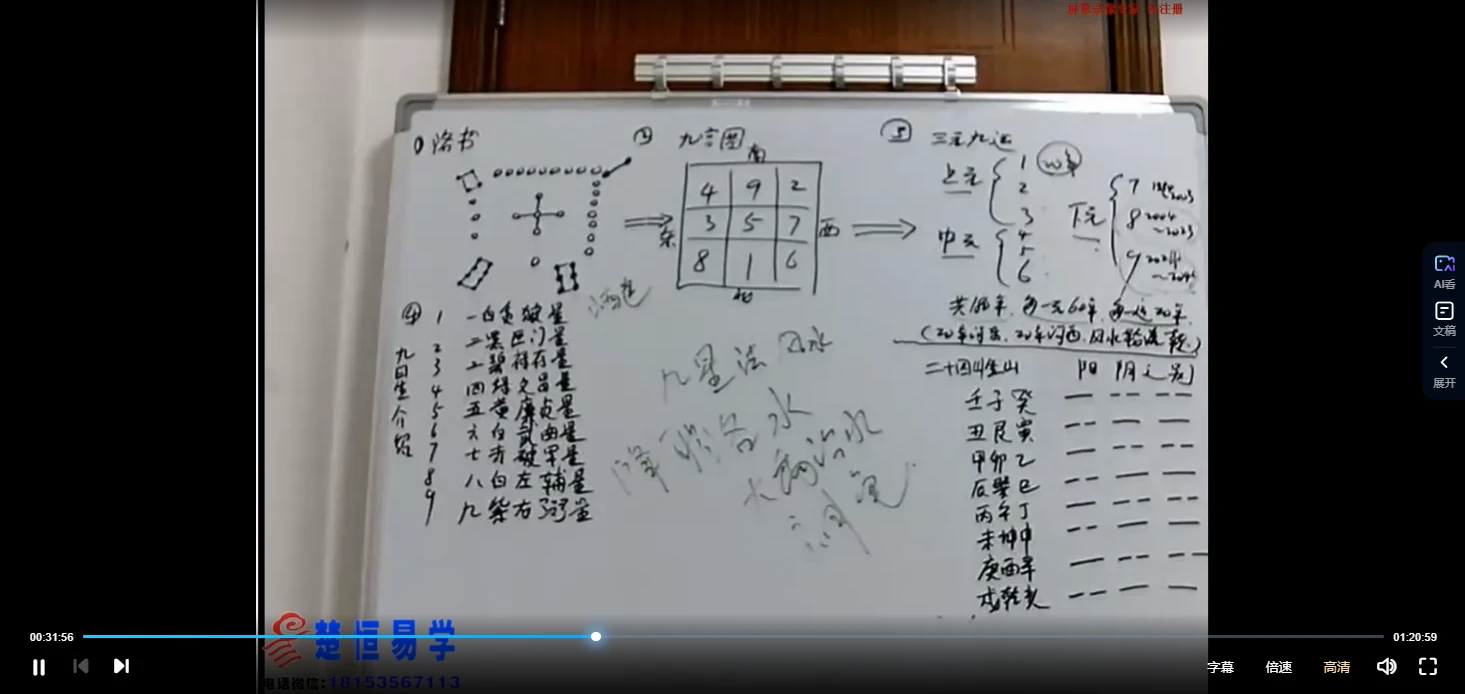 洛书
九宫图
南
4 9 2
3 5 7
8 1 6
东
西
北
③ 三元九运
上元
1
2
3
20年
中元
4
5
6
下元
7
8 2004
~2023
9
共180年，每一元60年，每一运20年
二十四山坐山 阳 阴之别
壬子癸
丑艮寅
甲卯乙
辰巽巳
丙午丁
未坤申
庚酉辛
戌乾亥
④
九星介绍
1 一白贪狼星
2 二黑巨门星
3 三碧禄存星
4 四绿文昌星
5 五黄廉贞星
6 六白武曲星
7 七赤破军星
8 八白左辅星
9 九紫右弼星
九星法 风水
楚恒易学
电话微信:18153567113
00:31:56
01:20:59
字幕
倍速
高清
AI看
文稿
展开